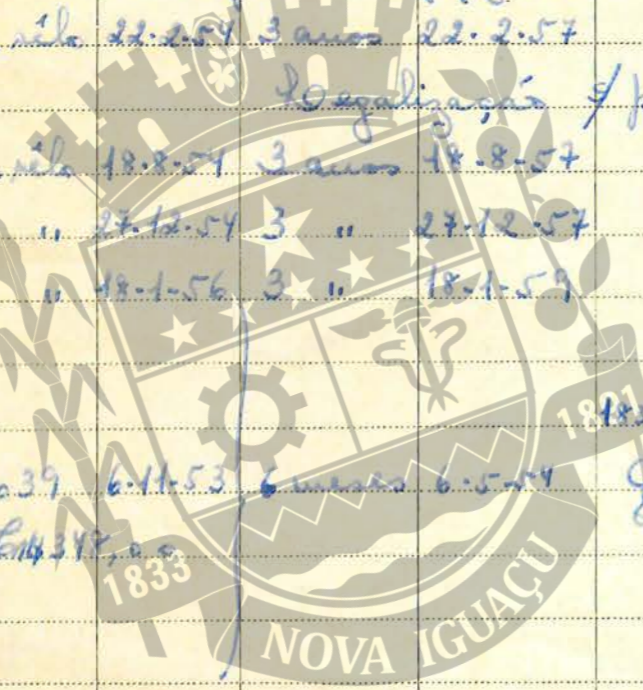 sêlo 22-2-54 3 anos 22-2-57
Legalização s/
sêlo 18-8-54 3 anos 18-8-57
" 27-12-54 3 " 27-12-57
" 18-1-56 3 " 18-1-59
1891
39 6-11-53 6 meses 6-5-54
4348,00
1833
NOVA IGUAÇU